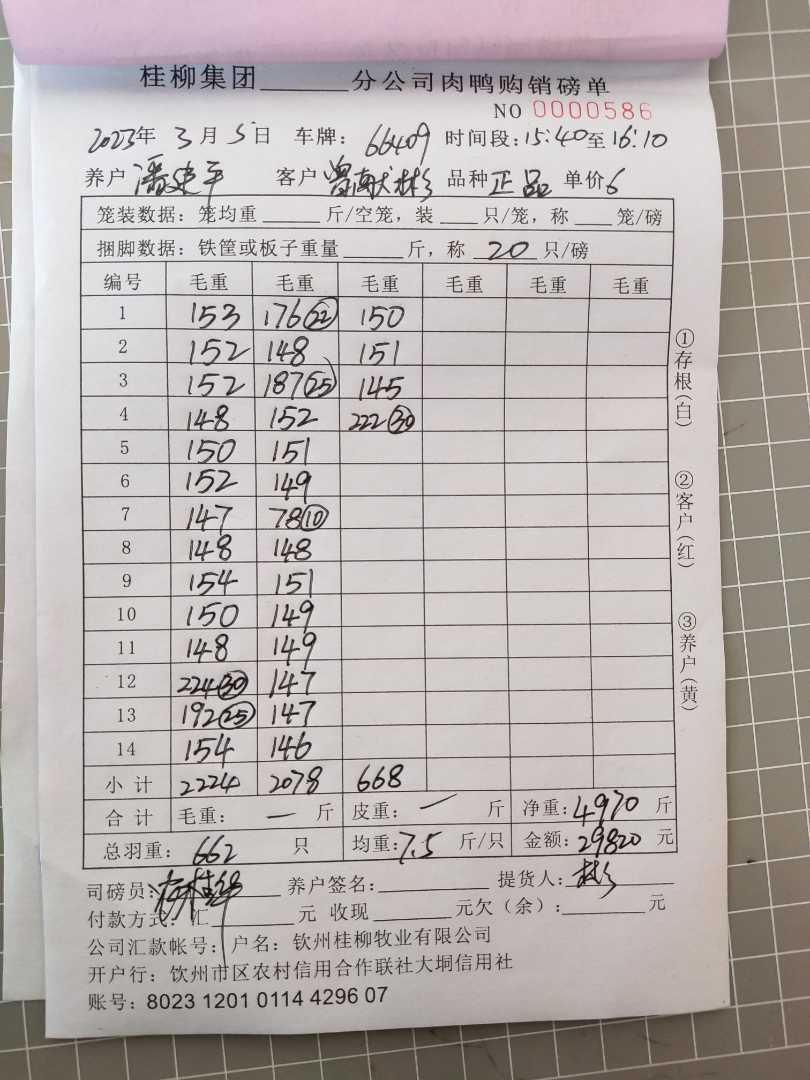 桂柳集团______分公司肉鸭购销磅单
NO 0000586
2023年 3月 5日 车牌: 66409 时间段: 15:40至16:10
养户 潘建平 客户 曾献彬 品种 正品 单价6
笼装数据: 笼均重______斤/空笼, 装____只/笼, 称____笼/磅
捆脚数据: 铁筐或板子重量______斤, 称 20 只/磅
编号 毛重 毛重 毛重 毛重 毛重 毛重
1 153 176(22) 150
2 152 148 151
3 152 187(25) 145
4 148 152 222(30)
5 150 151
6 152 149
7 147 78(10)
8 148 148
9 154 151
10 150 149
11 148 149
12 224(30) 147
13 192(25) 147
14 154 146
小计 2224 2078 668
合计 毛重: 一 斤 皮重: 一 斤 净重: 4970 斤
总羽重: 662 只 均重: 7.5 斤/只 金额: 29820 元
司磅员: 养户签名:________ 提货人: 彬
付款方式: 汇________元 收现________元欠(余):________元
公司汇款帐号: 户名: 钦州桂柳牧业有限公司
开户行: 钦州市区农村信用合作联社大垌信用社
账号: 8023 1201 0114 4296 07
①存根(白)
②客户(红)
③养户(黄)